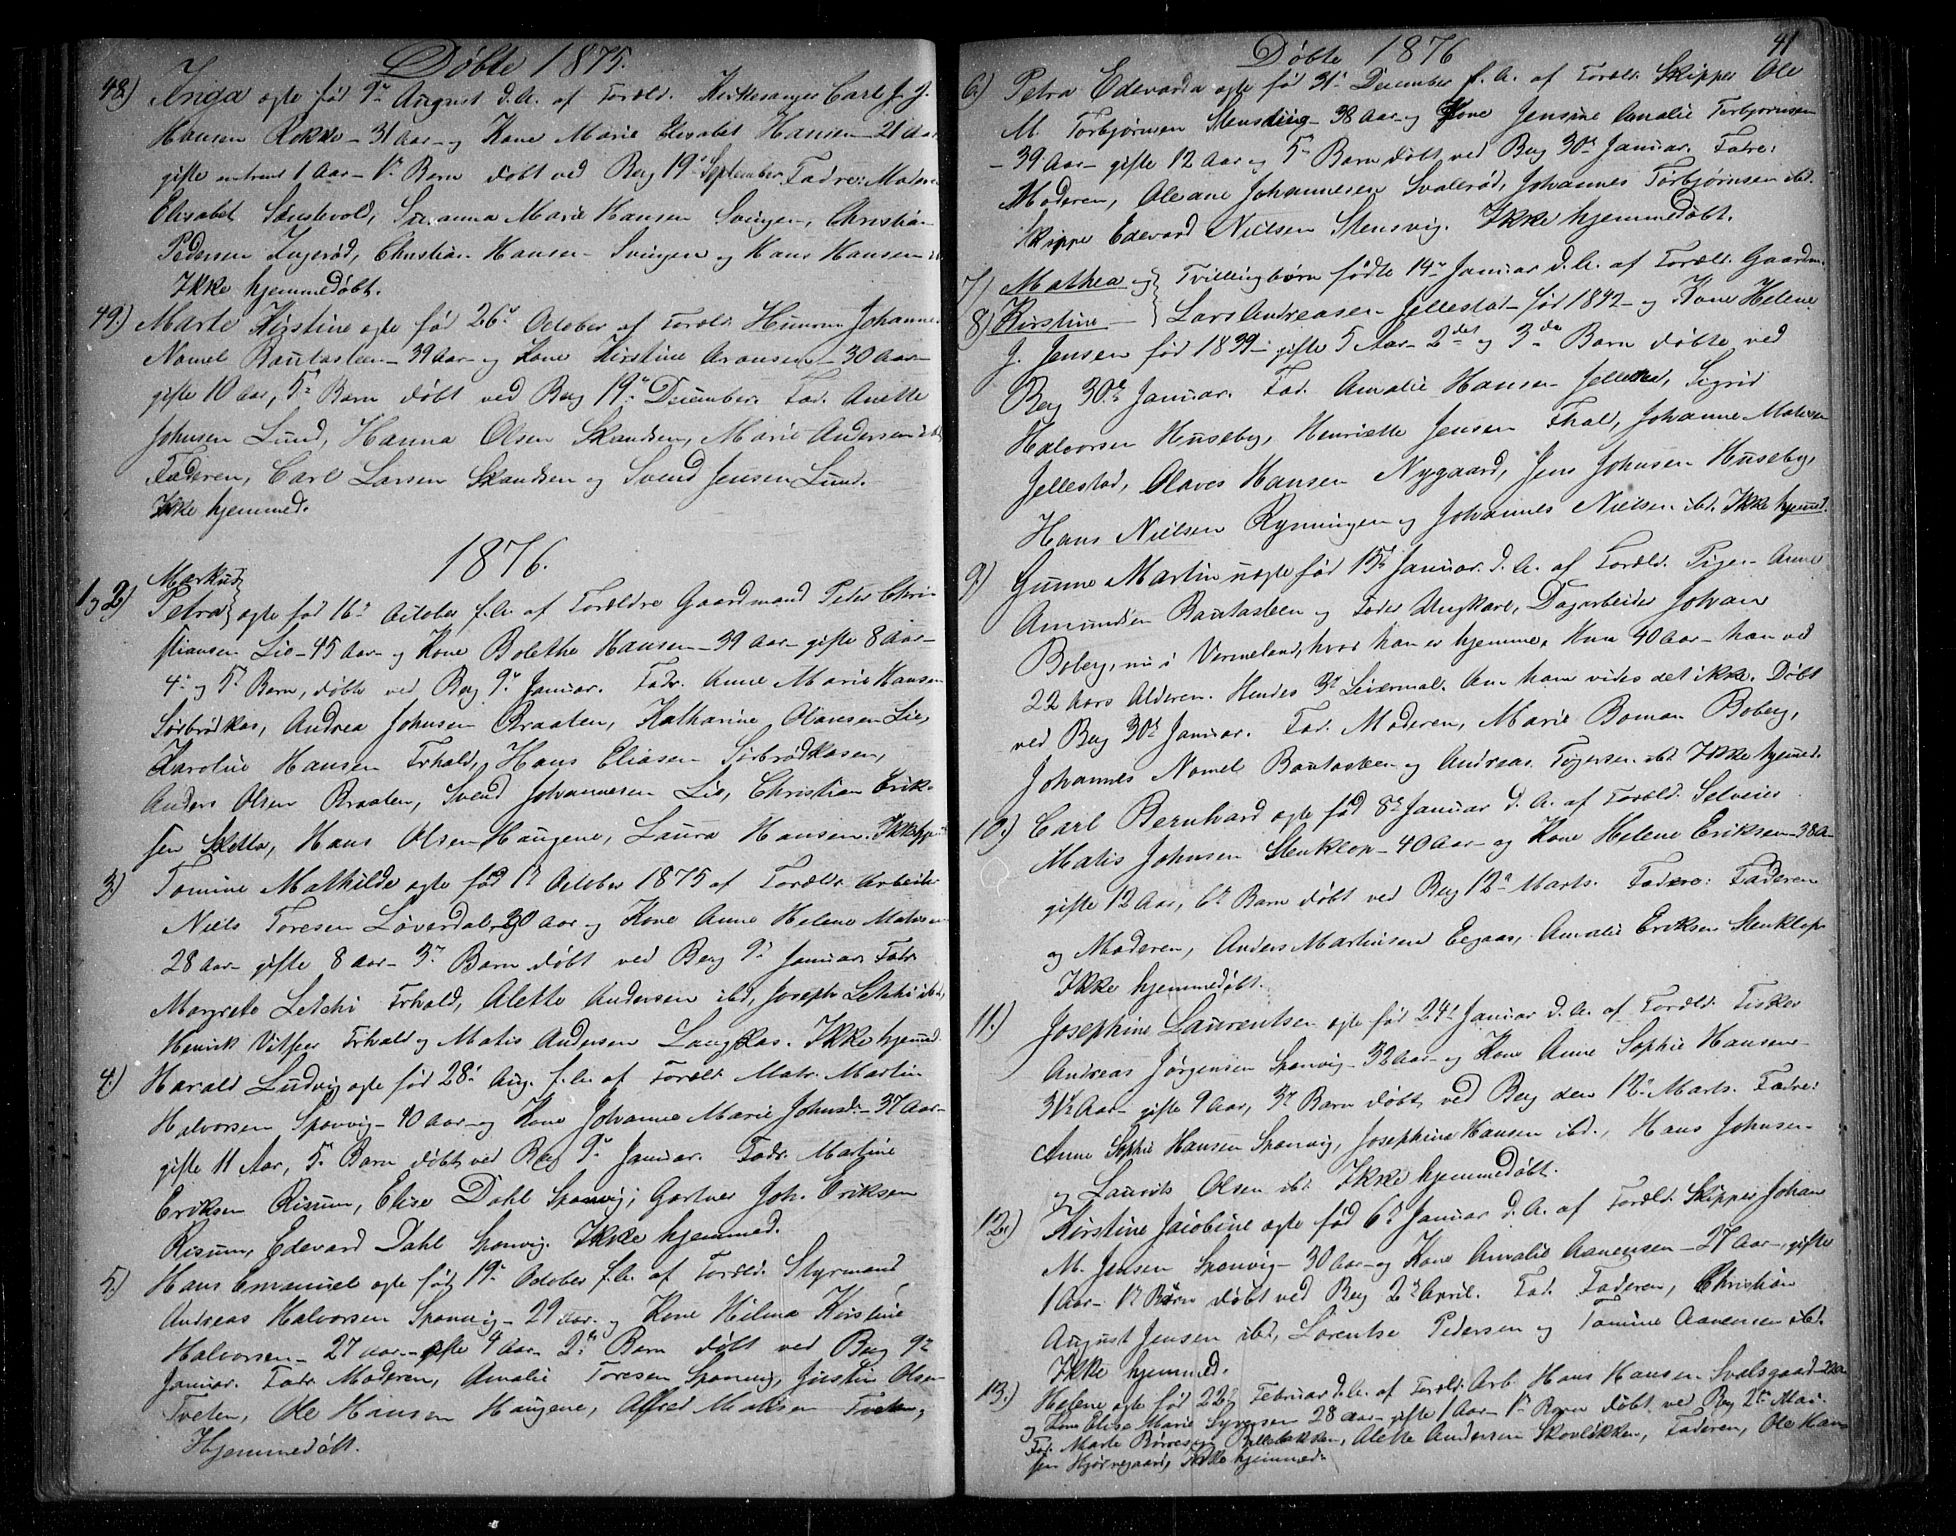 Døbte 1875.
48.) Inga ægte født 9de August d.A. af Foræld. Kirkesanger Carl J. J.
Hansen Rokke - 31 Aar - og Kone Marie Elisabet Hansen - 21 Aar
gifte omtrent 1 Aar - 1ste Barn døbt ved Berg 19de September. Fadre: Moderen
Elisabet Sandvold, Susanna Marie Hansen Svingen, Christian
Pedersen Ingerød, Christian Hansen Svingen og Hans Hansen ibd.
Ikke hjemmedøbt.
49.) Marte Kirstine ægte fød 26de October af Foræld. Huusm. Johannes
Nomel Bautasteen - 39 Aar - og Kone Kirstine Aronsen - 30 Aar -
gifte 10 Aar, 5te Barn døbt ved Berg 19de December. Fad. Anette
Johnsen Lund, Hanna Olsen Skandsen, Marie Andersen ibd.
Faderen, Carl Larsen Skandsen og Svend Jensen Lund.
Ikke hjemmed.
1876.
Markus
1 og 2) Petra ægte fød 16de October f.A. af Forældre Gaardmand Peder Chri-
stiansen Lie - 45 Aar - og Kone Bolethe Hansen - 39 Aar - gifte 8 Aar -
4de og 5te Barn, døbte ved Berg 9de Januar. Fadr. Anne Marie Hansen
Sørbrødkas, Andrea Johnsen Braaten, Katharine Hansen Lie,
Karoline Hansen Frhald, Hans Eliasen Sørbrødkasen,
Anders Olsen Braaten, Svend Johannesen Lie, Christian Erik-
sen Sletta, Hans Olsen Haugene, Laura Hansen. Ikke hj.
3.) Tomine Mathilde ægte fød 1ste October 1875 af Foræld. Arbeider
Niels Toresen Løverdal, 30 Aar og Kone Anne Helene Matisen
28 Aar - gifte 8 Aar - 3de Barn døbt ved Berg 9de Januar. Fadr.
Margrete Letchi Frhald, Alette Andersen ibd, Joseph Letchi ibd,
Henrik Frhald og Matis Andersen Langkas. Ikke hjemmed.
4.) Harald Ludvig ægte fød 28de Aug. f.A. af Foræld. Matr. Martin
Halvorsen Sponvig - 40 Aar - og Kone Johanne Marie Johnsd. - 37 Aar -
gifte 11 Aar, 5te Barn døbt ved Berg 9de Januar. Fadr. Martine
Eriksen Risum, Elise Dahl Sponvig, Gartner Joh. Eriksen
Risum, Edevard Dahl Sponvig. Ikke hjemmed.
5.) Hans Emanuel ægte fød 19de October f.A. af Foræld. Styrmand
Andreas Halvorsen Sponvig - 29 Aar - og Kone Hilma Kirstine
Halvorsen - 27 Aar - gifte 4 Aar - 2det Barn døbt ved Berg 9de
Januar. Fadr. Moderen, Amalie Toresen Sponvig, Justin Olsen
Tveten, Ole Hansen Haugene, Alfred Matisen Tveten,
Hjemmedøbt.
Døbte 1876
41
6.) Petra Edevarda ægte fød 31te December f.A. af Foræld. Skipper Ole
M. Torbjørnsen Stensvig - 38 Aar - og Kone Jensine Amalie Torbjørnsen
- 39 Aar - gifte 12 Aar og 5te Barn døbt ved Berg 30te Januar. Fadre:
Moderen, Oleane Johannesen Svalerød, Johannes Torbjørnsen ibd.
Skipper Edevard Nielsen Stensvig. Ikke hjemmedøbt.
7.) Mathea og Tvillingbørn fødte 14de Januar d.A. af Foræld. Gaardm.
8.) Kirstine - Lars Andreasen Jellestad - fød 1842 - og Kone Helene
J. Jensen fød 1839 - gifte 5 Aar - 2det og 3die Barn døbte ved
Berg 30te Januar. Fad. Amalie Hansen Jellestad, Sigrid
Halvorsen Huseby, Henriette Jensen Fhal, Johanne Matisen
Jellestad, Olaves Hansen Nygaard, Jens Johnsen Huseby,
Hans Nielsen Rynningen og Johannes Nielsen ibd. Ikke hjemmd.
9.) Gunne Martin uægte fød 15de Januar d.A. af Foræld. Pige Anne
Amundsen Bautasteen og Fader Ungkarl, Dagarbeider Johan
Boberg, nu i Vermeland, hvor han er hjemme, Hun 40 Aar - han ved
22 Aars Alderen. Hendes 3de Leiermal. Om hans vides det ikke. Døbt
ved Berg 30te Januar. Fad. Moderen, Marie Boman Boberg,
Johannes Nomel Bautasteen og Andreas Togersen ibd. Ikke hjemmd.
10.) Carl Bernhard ægte fød 8de Januar d.A. af Foræld. Selveier
Matis Johnsen Stenklop - 40 Aar - og Kone Helene Eriksen - 38 A.
gifte 12 Aar, 6te Barn døbt ved Berg 12te Marts. Fadre: Faderen
og Moderen, Anders Martinsen Eegaas, Amalie Eriksen Stenklop
Ikke hjemmedøbt.
11.) Josephine Laurentse ægte fød 24de Januar d.A. af Foræld. Fisker
Andreas Jørgensen Sponvig - 32 Aar - og Kone Anne Sophie Hansen -
31½ Aar - gifte 9 Aar, 3de Barn døbt ved Berg den 12te Marts. Fadre:
Anne Sophie Hansen Sponvig, Josephine Hansen ibd., Hans Johnsen
og Laurits Olsen ibd. Ikke hjemmedøbt.
12.) Kirstine Jacobine ægte fød 6te Januar d.A. af Foræld. Skipper Johan
M. Jensen Sponvig - 30 Aar - og Kone Amalie Aanensen - 27 Aar - gifte
1 Aar - 1ste Barn døbt ved Berg 2den April. Fad. Faderen, Christian
August Jensen ibd, Lorentse Pedersen og Tomine Aanensen ibd.
Ikke hjemmed.
13.) Helene ægte fød 22de Februar d.A. af Foræld. Arb. Hans Hansen Svalsgaard 22 Aar
og Kone Elise Marie Syversen 28 Aar - gifte 1 Aar - 1ste Barn døbt ved Berg 2den Mai.
Fad. Marte Børresen Pellebakken, Alette Andersen Skovlikken, Faderen, Ole Han-
sen Hjørnegaard, Ikke hjemmed.